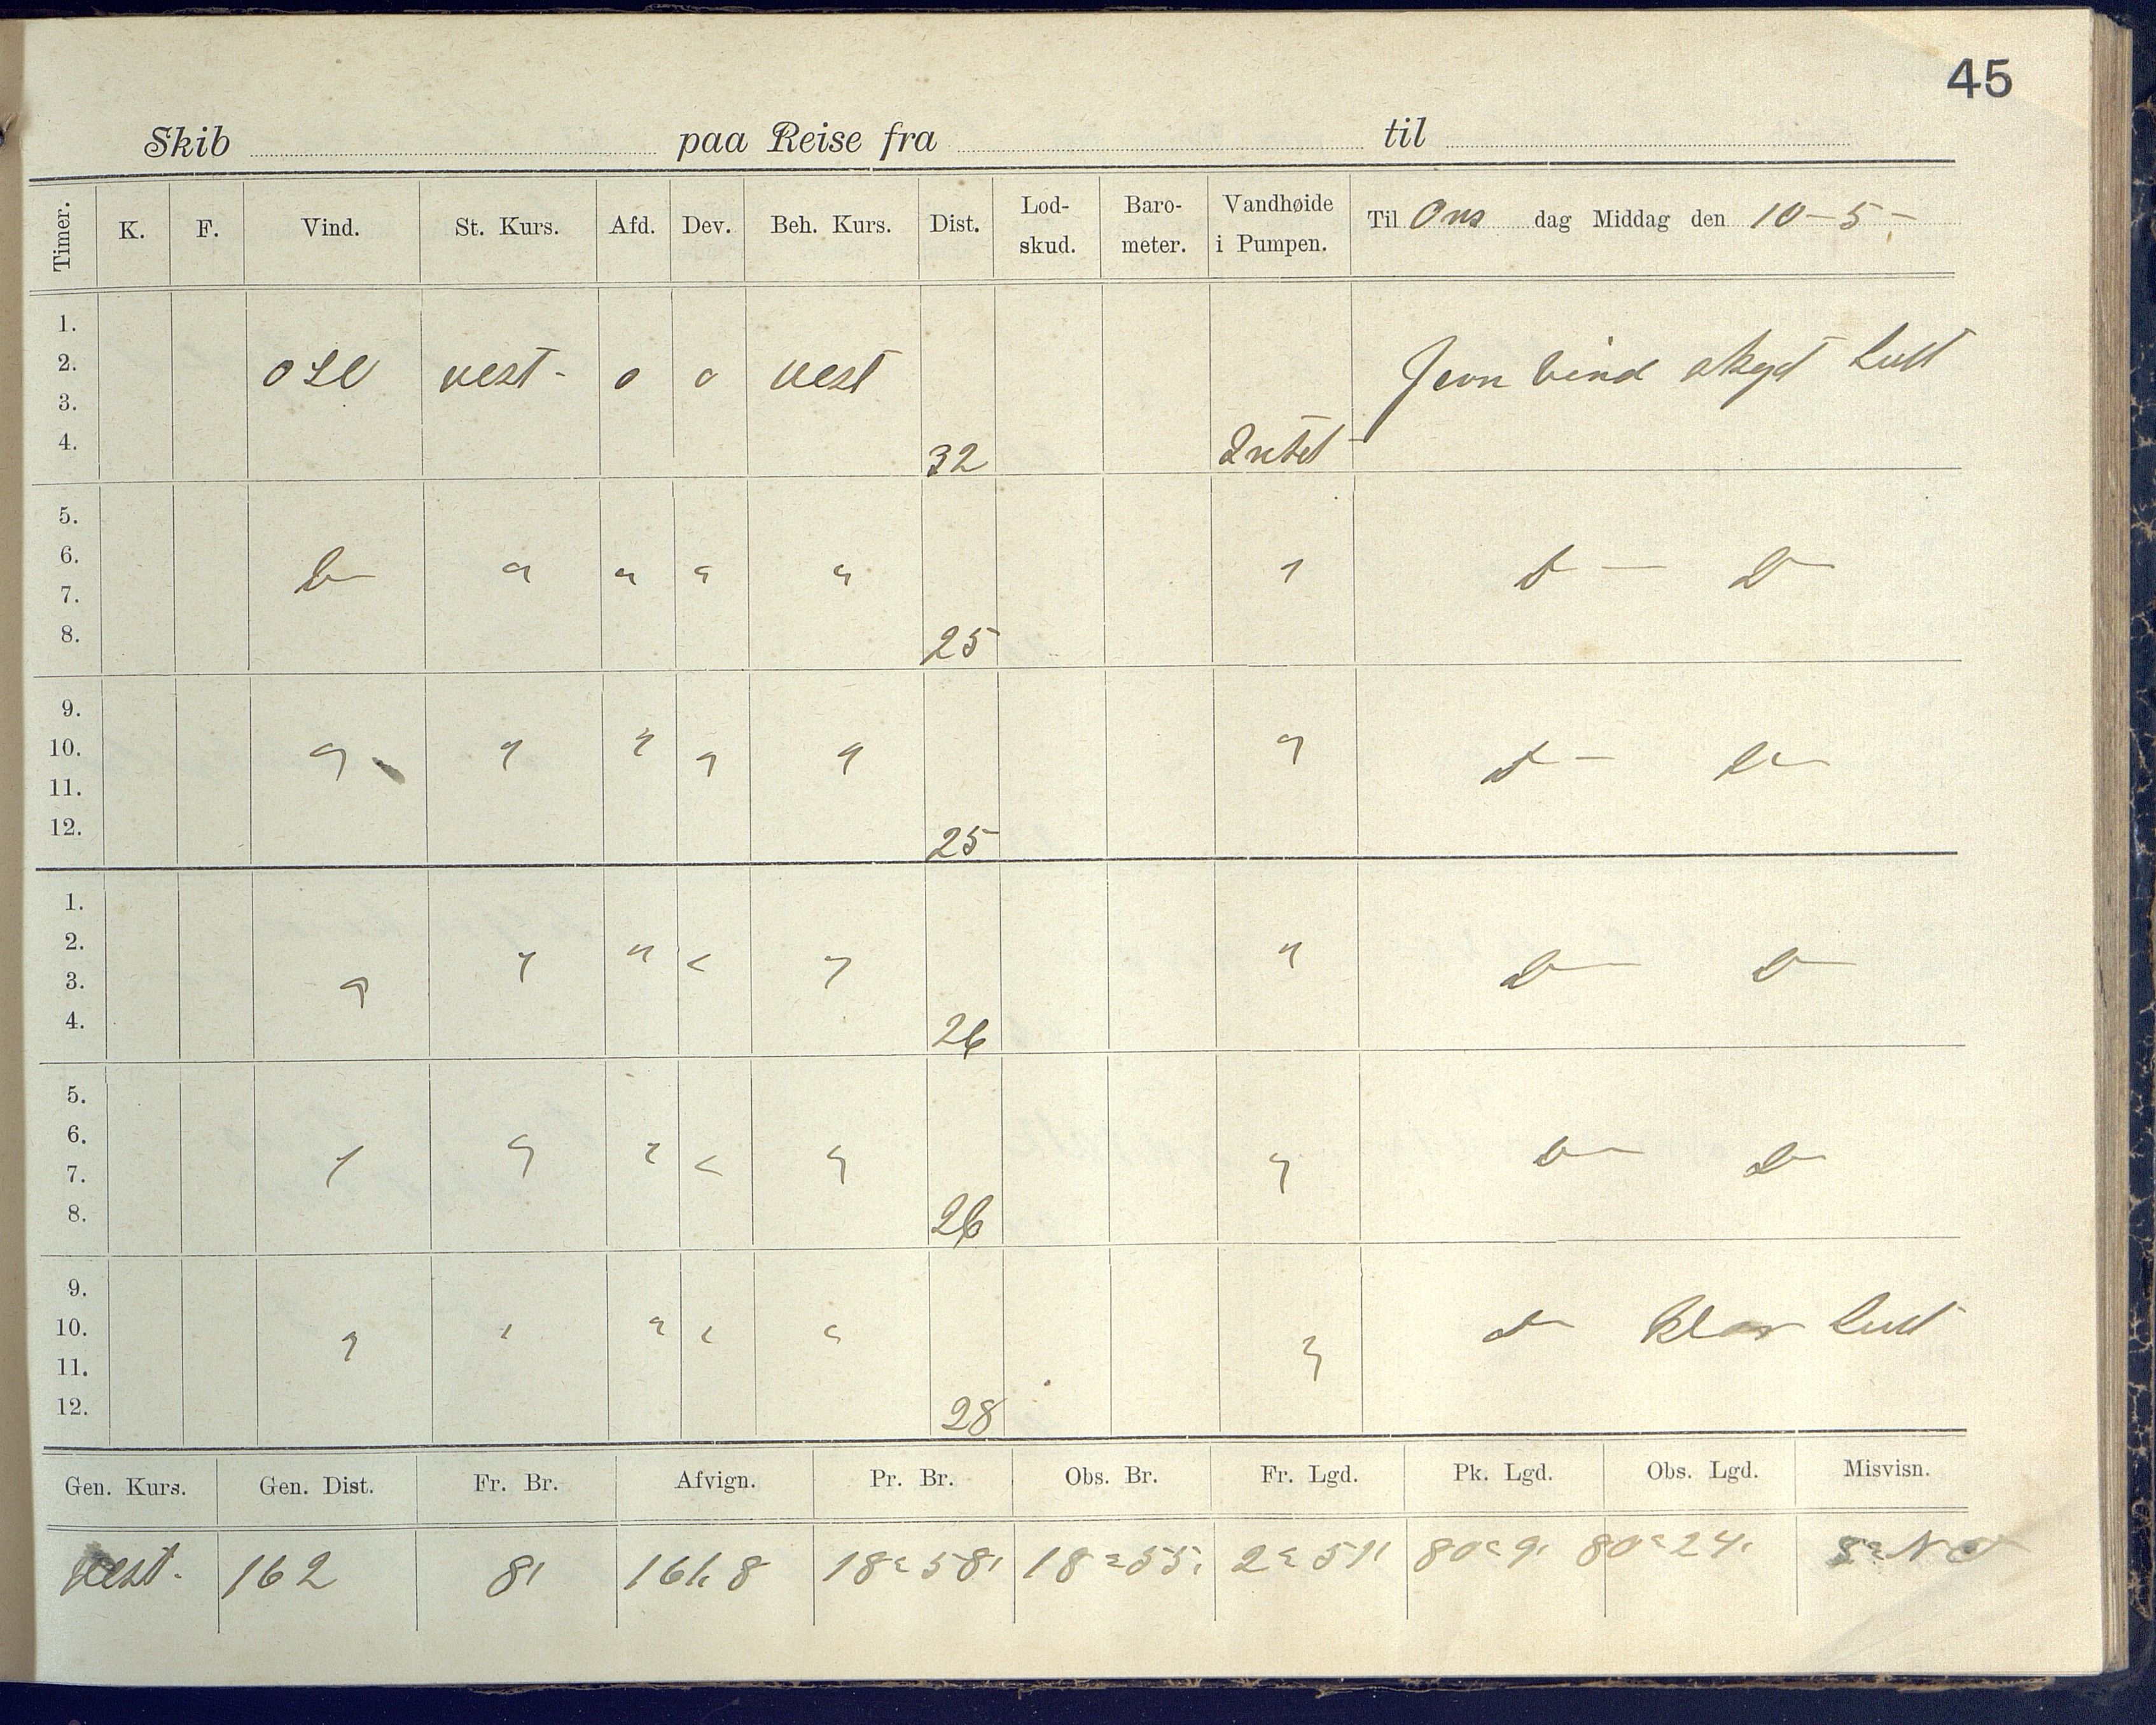 45
Skib paa Reise fra til
Timer. K. F. Vind. St. Kurs. Afd. Dev. Beh. Kurs. Dist. Lod-skud. Baro-meter. Vandhøide i Pumpen. Til Ons dag Middag den 10-5-
1.
2. vest - o o vest Jevn vind skyet luft
3.
4. 32 Intet
5.
6. " " " " " D - D
7.
8. 25
9.
10. " " " " " " D - D
11.
12. 25
1.
2. " " " " " " D D
3.
4. 26
5.
6. " " " " " " D D
7.
8. 26
9.
10. " " " " " " D Klar luft
11.
12. 28
Gen. Kurs. Gen. Dist. Fr. Br. Afvign. Pr. Br. Obs. Br. Fr. Lgd. Pk. Lgd. Obs. Lgd. Misvisn.
vest. 162 8' 161,8 18° 58' 18° 55' 2° 51' 80° 9' 80° 24'